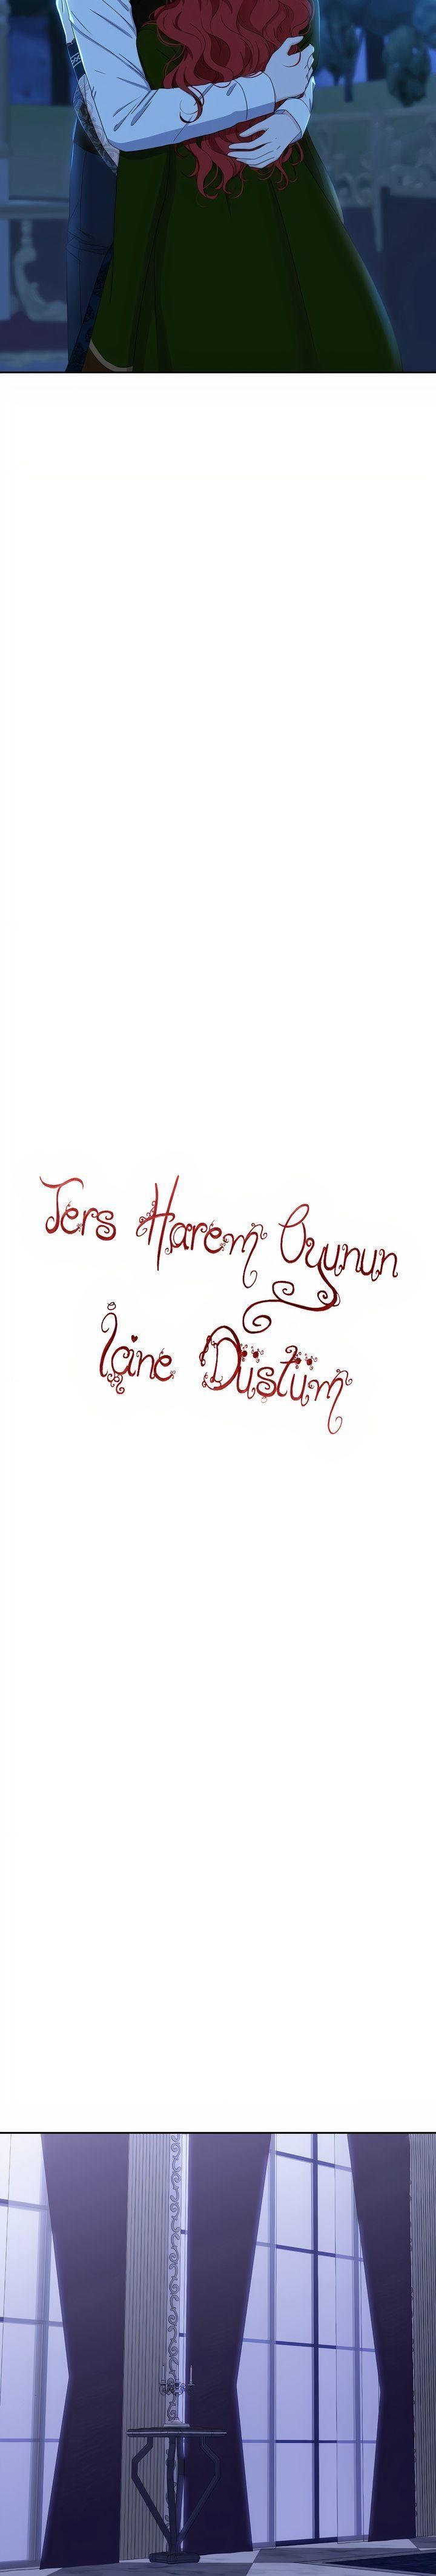 Ters Harem Oyunun
İçine Düştüm